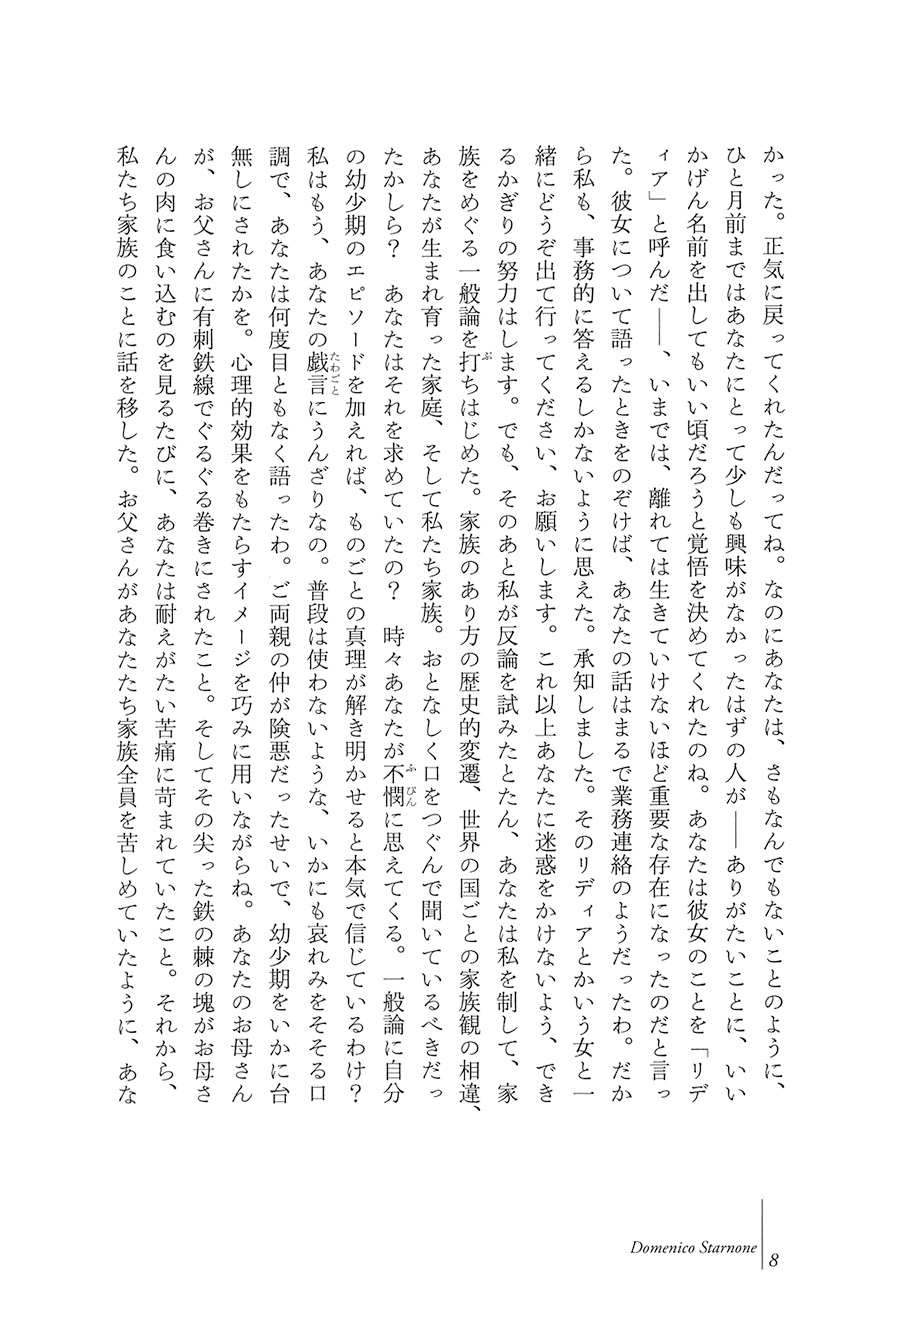 かった。正気に戻ってくれたんだってね。なのにあなたは、さもなんでもないことのように、
ひと月前まではあなたにとって少しも興味がなかったはずの人が――ありがたいことに、いい
かげん名前を出してもいい頃だろうと覚悟を決めてくれたのね。あなたは彼女のことを「リデ
ィア」と呼んだ――、いまでは、離れては生きていけないほど重要な存在になったのだと言っ
た。彼女について語ったときをのぞけば、あなたの話はまるで業務連絡のようだったわ。だか
ら私も、事務的に答えるしかないように思えた。承知しました。そのリディアとかいう女と一
緒にどうぞ出て行ってください、お願いします。これ以上あなたに迷惑をかけないよう、でき
るかぎりの努力はします。でも、そのあと私が反論を試みたとたん、あなたは私を制して、家
族をめぐる一般論を打ちはじめた。家族のあり方の歴史的変遷、世界の国ごとの家族観の相違、
あなたが生まれ育った家庭、そして私たち家族。おとなしく口をつぐんで聞いているべきだっ
たかしら？　あなたはそれを求めていたの？　時々あなたが不憫に思えてくる。一般論に自分
の幼少期のエピソードを加えれば、ものごとの真理が解き明かせると本気で信じているわけ？
私はもう、あなたの戯言にうんざりなの。普段は使わないような、いかにも哀れみをそそる口
調で、あなたは何度目ともなく語ったわ。ご両親の仲が険悪だったせいで、幼少期をいかに台
無しにされたかを。心理的効果をもたらすイメージを巧みに用いながらね。あなたのお母さん
が、お父さんに有刺鉄線でぐるぐる巻きにされたこと。そしてその尖った鉄の棘の塊がお母さ
んの肉に食い込むのを見るたびに、あなたは耐えがたい苦痛に苛まれていたこと。それから、
私たち家族のことに話を移した。お父さんがあなたたち家族全員を苦しめていたように、あな
Domenico Starnone
8